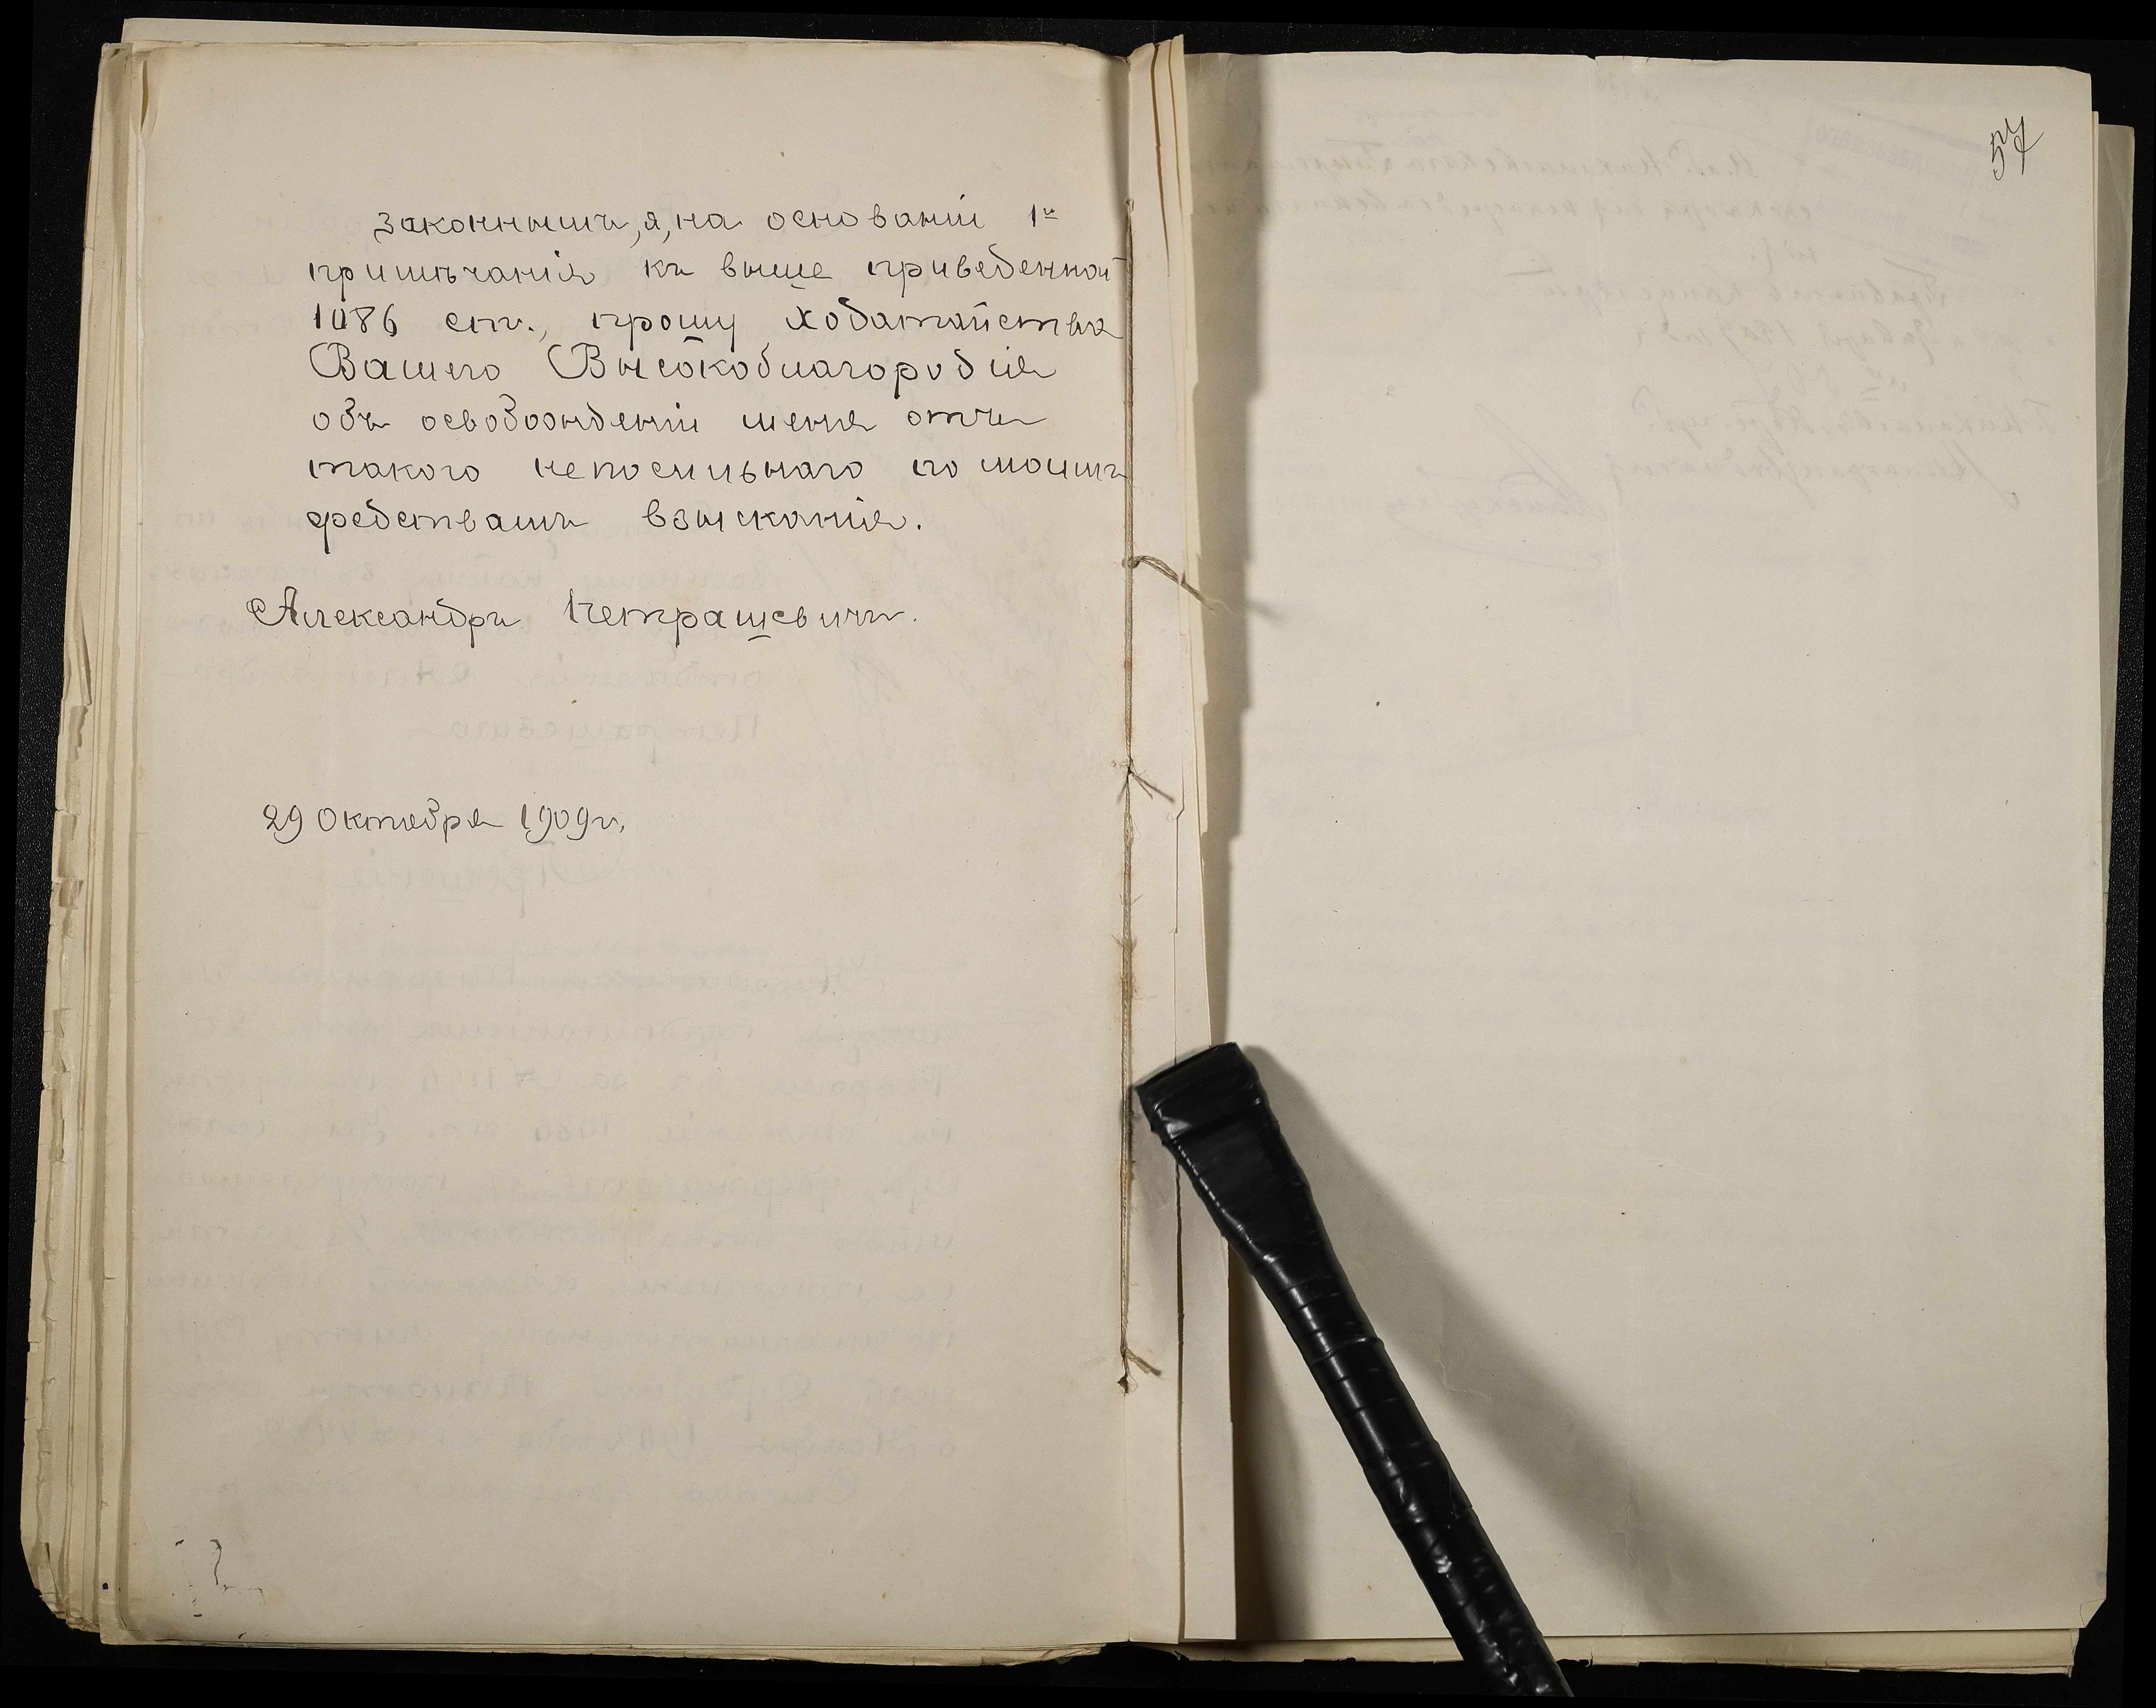 законнымъ, я, на основаніи 1й
примѣчанія къ выше приведенной
1086 ст., прошу ходатайства
Вашего Высокоблагородія
объ освобожденіи меня отъ
такого непосильнаго по моимъ
средствамъ взысканія.
Александръ Петрашевичъ.
29 Октября 1909 г.
57